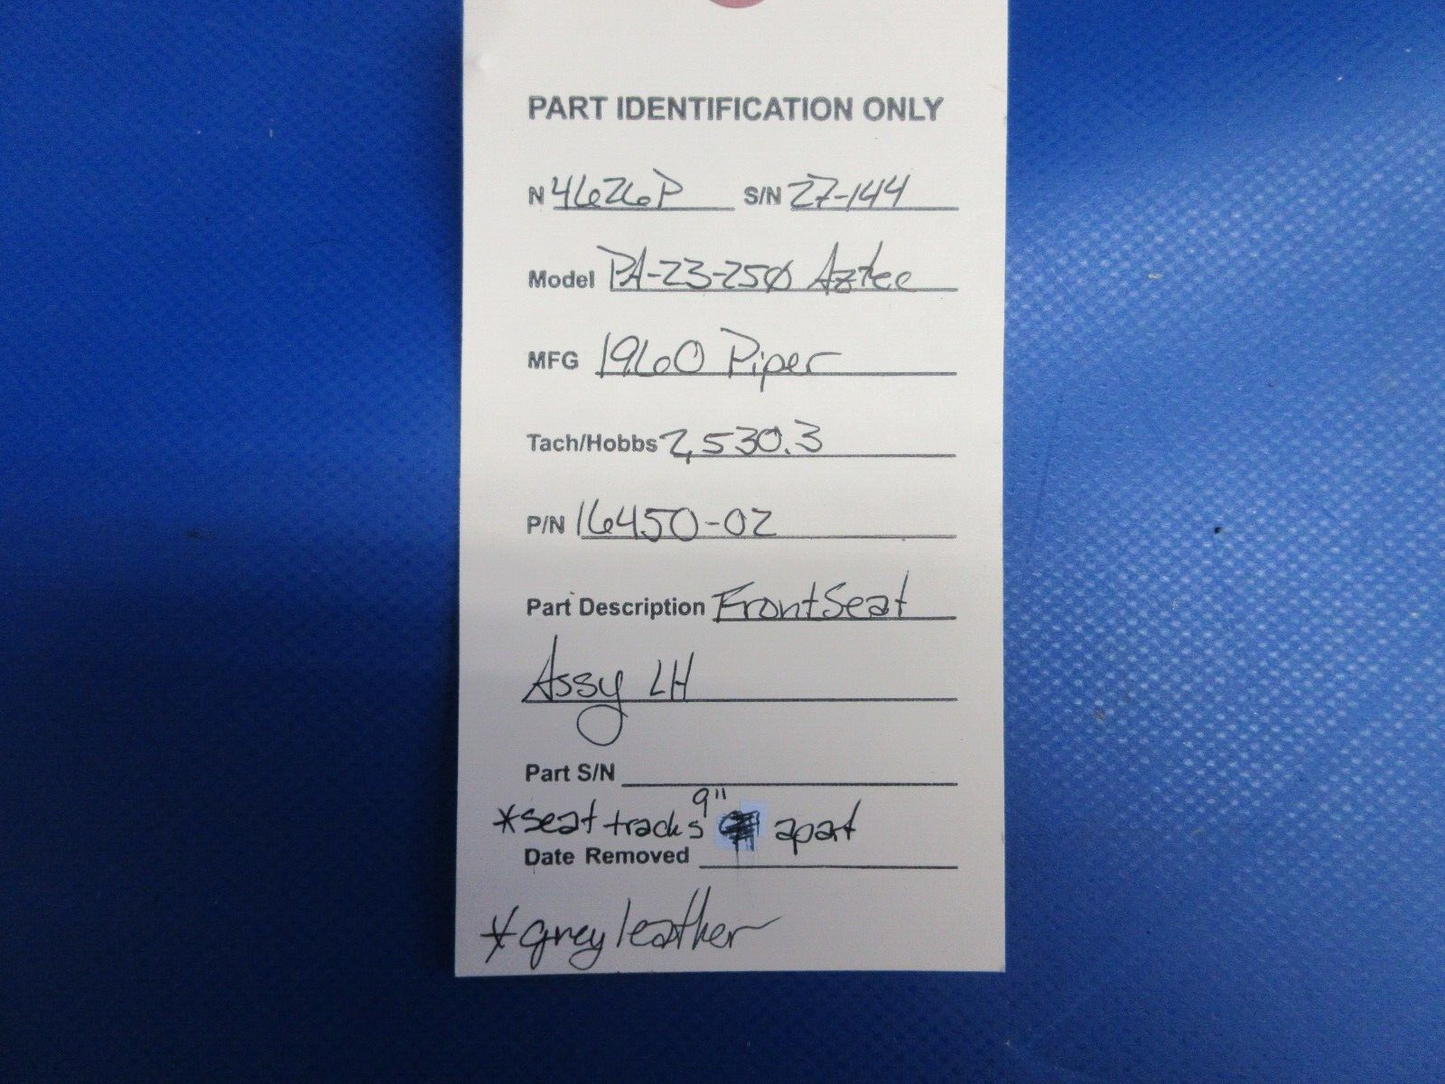 PART IDENTIFICATION ONLY
N 4626P S/N 27-144
Model PA-23-250 Aztec
MFG 1960 Piper
Tach/Hobbs 2,530.3
P/N 16450-02
Part Description Front Seat
Assy LH
Part S/N
*seat tracks 9" apart
Date Removed
*grey leather